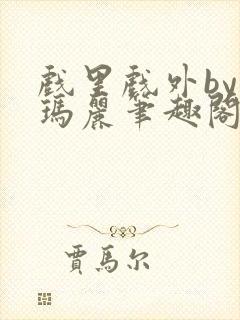 戲里戲外by
瑪麗筆趣閣
賈馬尔